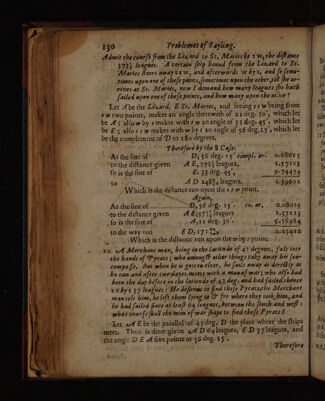 130 Problemes of Sayling.
Admit the course from the Lizard to St. Maries be s w, the distance
373½ leagues. A certain ship bound from the Lizard to St.
Maries steers away s s w, and afterwards w by s, and so some-
times upon one of these points, sometimes upon the other, till she ar-
rives at St. Maries, now I demand how many leagues she hath
sailed upon one of those points, and how many upon the other?
Let A be the Lizard, E St. Maries, and seeing s s w being from
s w two points, makes an angle therewith of 22 deg. 30', which let
be A; also w by s makes with s w an angle of 33 deg. 45', which let
be E; also s s w makes with w by s an angle of 56 deg. 15', which let
be the complement of D to 180 degrees.
Therefore by the 8 Case.
As the sine of D, 56 deg. 15' compl. ar. 0.08015
to the distance given A E, 373½ leagues, 2.57113
so is the sine of E, 33 deg. 45', 9.74474
to A D leagues, 2.39602
Which is the distance run upon the s s w point.
Again,
As the sine of D, 56 deg. 15' co. ar. 0.08015
to the distance given A E, leagues 2.57113
so is the sine of A, 22 deg. 30' 9.58284
to the way run E D, leagues, 2.23412
Which is the distance run upon the w by s point.
10. A Merchant man, being in the latitude of 43 degrees, falls into
the hands of Pyrats; who amongst other things take away his sea-
compasse. But when he is gotten clear, he sails away as directly as
he can and after two dayes meets with a man of war; who also had
been the day before in the latitude of 43 deg. and had sailed thence
s by 37 leagues! He desirous to find these Pyrats, the Merchant
man tels him, he left them lying to & fro where they took him, and
he had sailed since at least 64 leagues, between the south and west:
what course shall the man of war shape to find these Pyrats?
Let A E be the parallel of 43 deg. D the place where the ships
meet. Then is there given A D 64 leagues, E D 37 leagues, and
the angle D E A five points or 56 deg. 15'.
Therefore